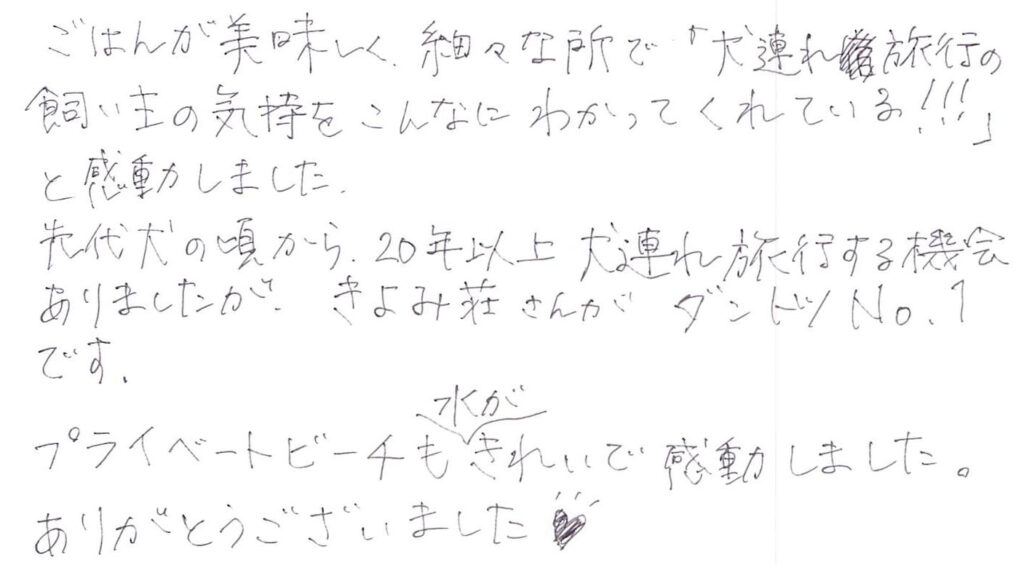 ごはんが美味しく、細々な所で「犬連れ旅行の
飼い主の気持をこんなにわかってくれている!!!」
と感動しました。
先代犬の頃から、20年以上 犬連れ旅行する機会
ありましたが、きよみ荘さんが ダントツNo.1
です。
水が
プライベートビーチもきれいで感動しました。
ありがとうございました♥